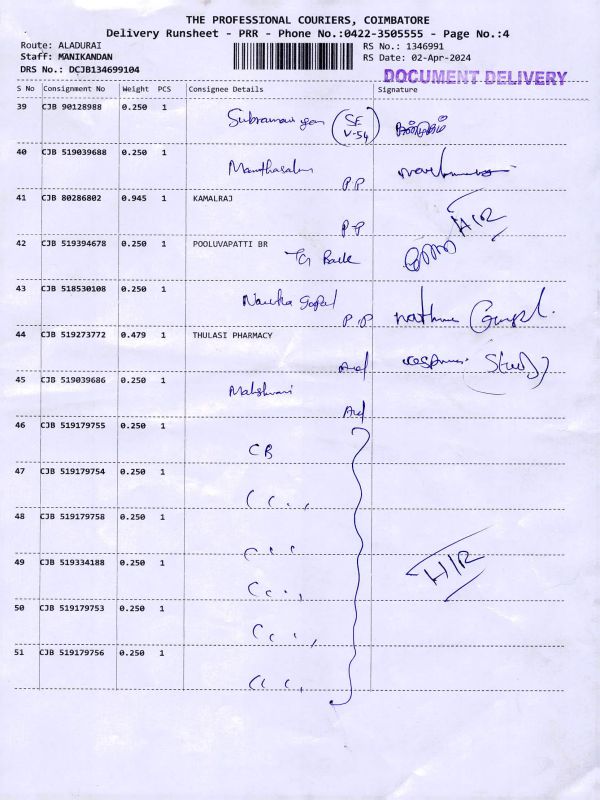 THE PROFESSIONAL COURIERS, COIMBATORE
Delivery Runsheet - PRR - Phone No.:0422-3505555 - Page No.:4
Route: ALADURAI
RS No.: 1346991
Staff: MANIKANDAN
RS Date: 02-Apr-2024
DRS No.: DCJB134699104
DOCUMENT DELIVERY
S No Consignment No Weight PCS Consignee Details Signature
39 CJB 90128988 0.250 1
SF
V-54
40 CJB 519039688 0.250 1
P.P
41 CJB 80286802 0.945 1 KAMALRAJ
P-P H/R
42 CJB 519394678 0.250 1 POOLUVAPATTI BR
43 CJB 518530108 0.250 1
Gopal
P.P
44 CJB 519273772 0.479 1 THULASI PHARMACY
45 CJB 519039686 0.250 1
46 CJB 519179755 0.250 1
CB
47 CJB 519179754 0.250 1
48 CJB 519179758 0.250 1
49 CJB 519334188 0.250 1
H/R
50 CJB 519179753 0.250 1
51 CJB 519179756 0.250 1